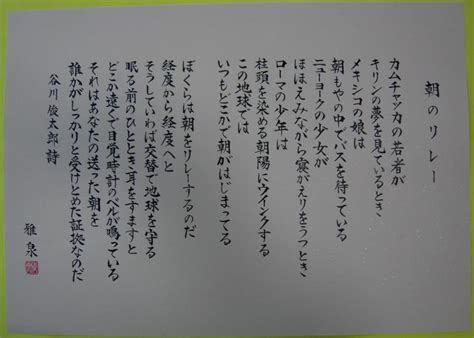 朝のリレー
カムチャッカの若者が
キリンの夢を見ているとき
メキシコの娘は
朝もやの中でバスを待っている
ニューヨークの少女が
ほほえみながら寝がえりをうつとき
ローマの少年は
柱頭を染める朝陽にウインクする
この地球では
いつもどこかで朝がはじまってる
ぼくらは朝をリレーするのだ
経度から経度へと
そうしていわば交替で地球を守る
眠る前のひととき耳をすますと
どこか遠くで目覚時計のベルが鳴っている
それはあなたの送った朝を
誰かがしっかりと受けとめた証拠なのだ
谷川俊太郎 詩
雅泉